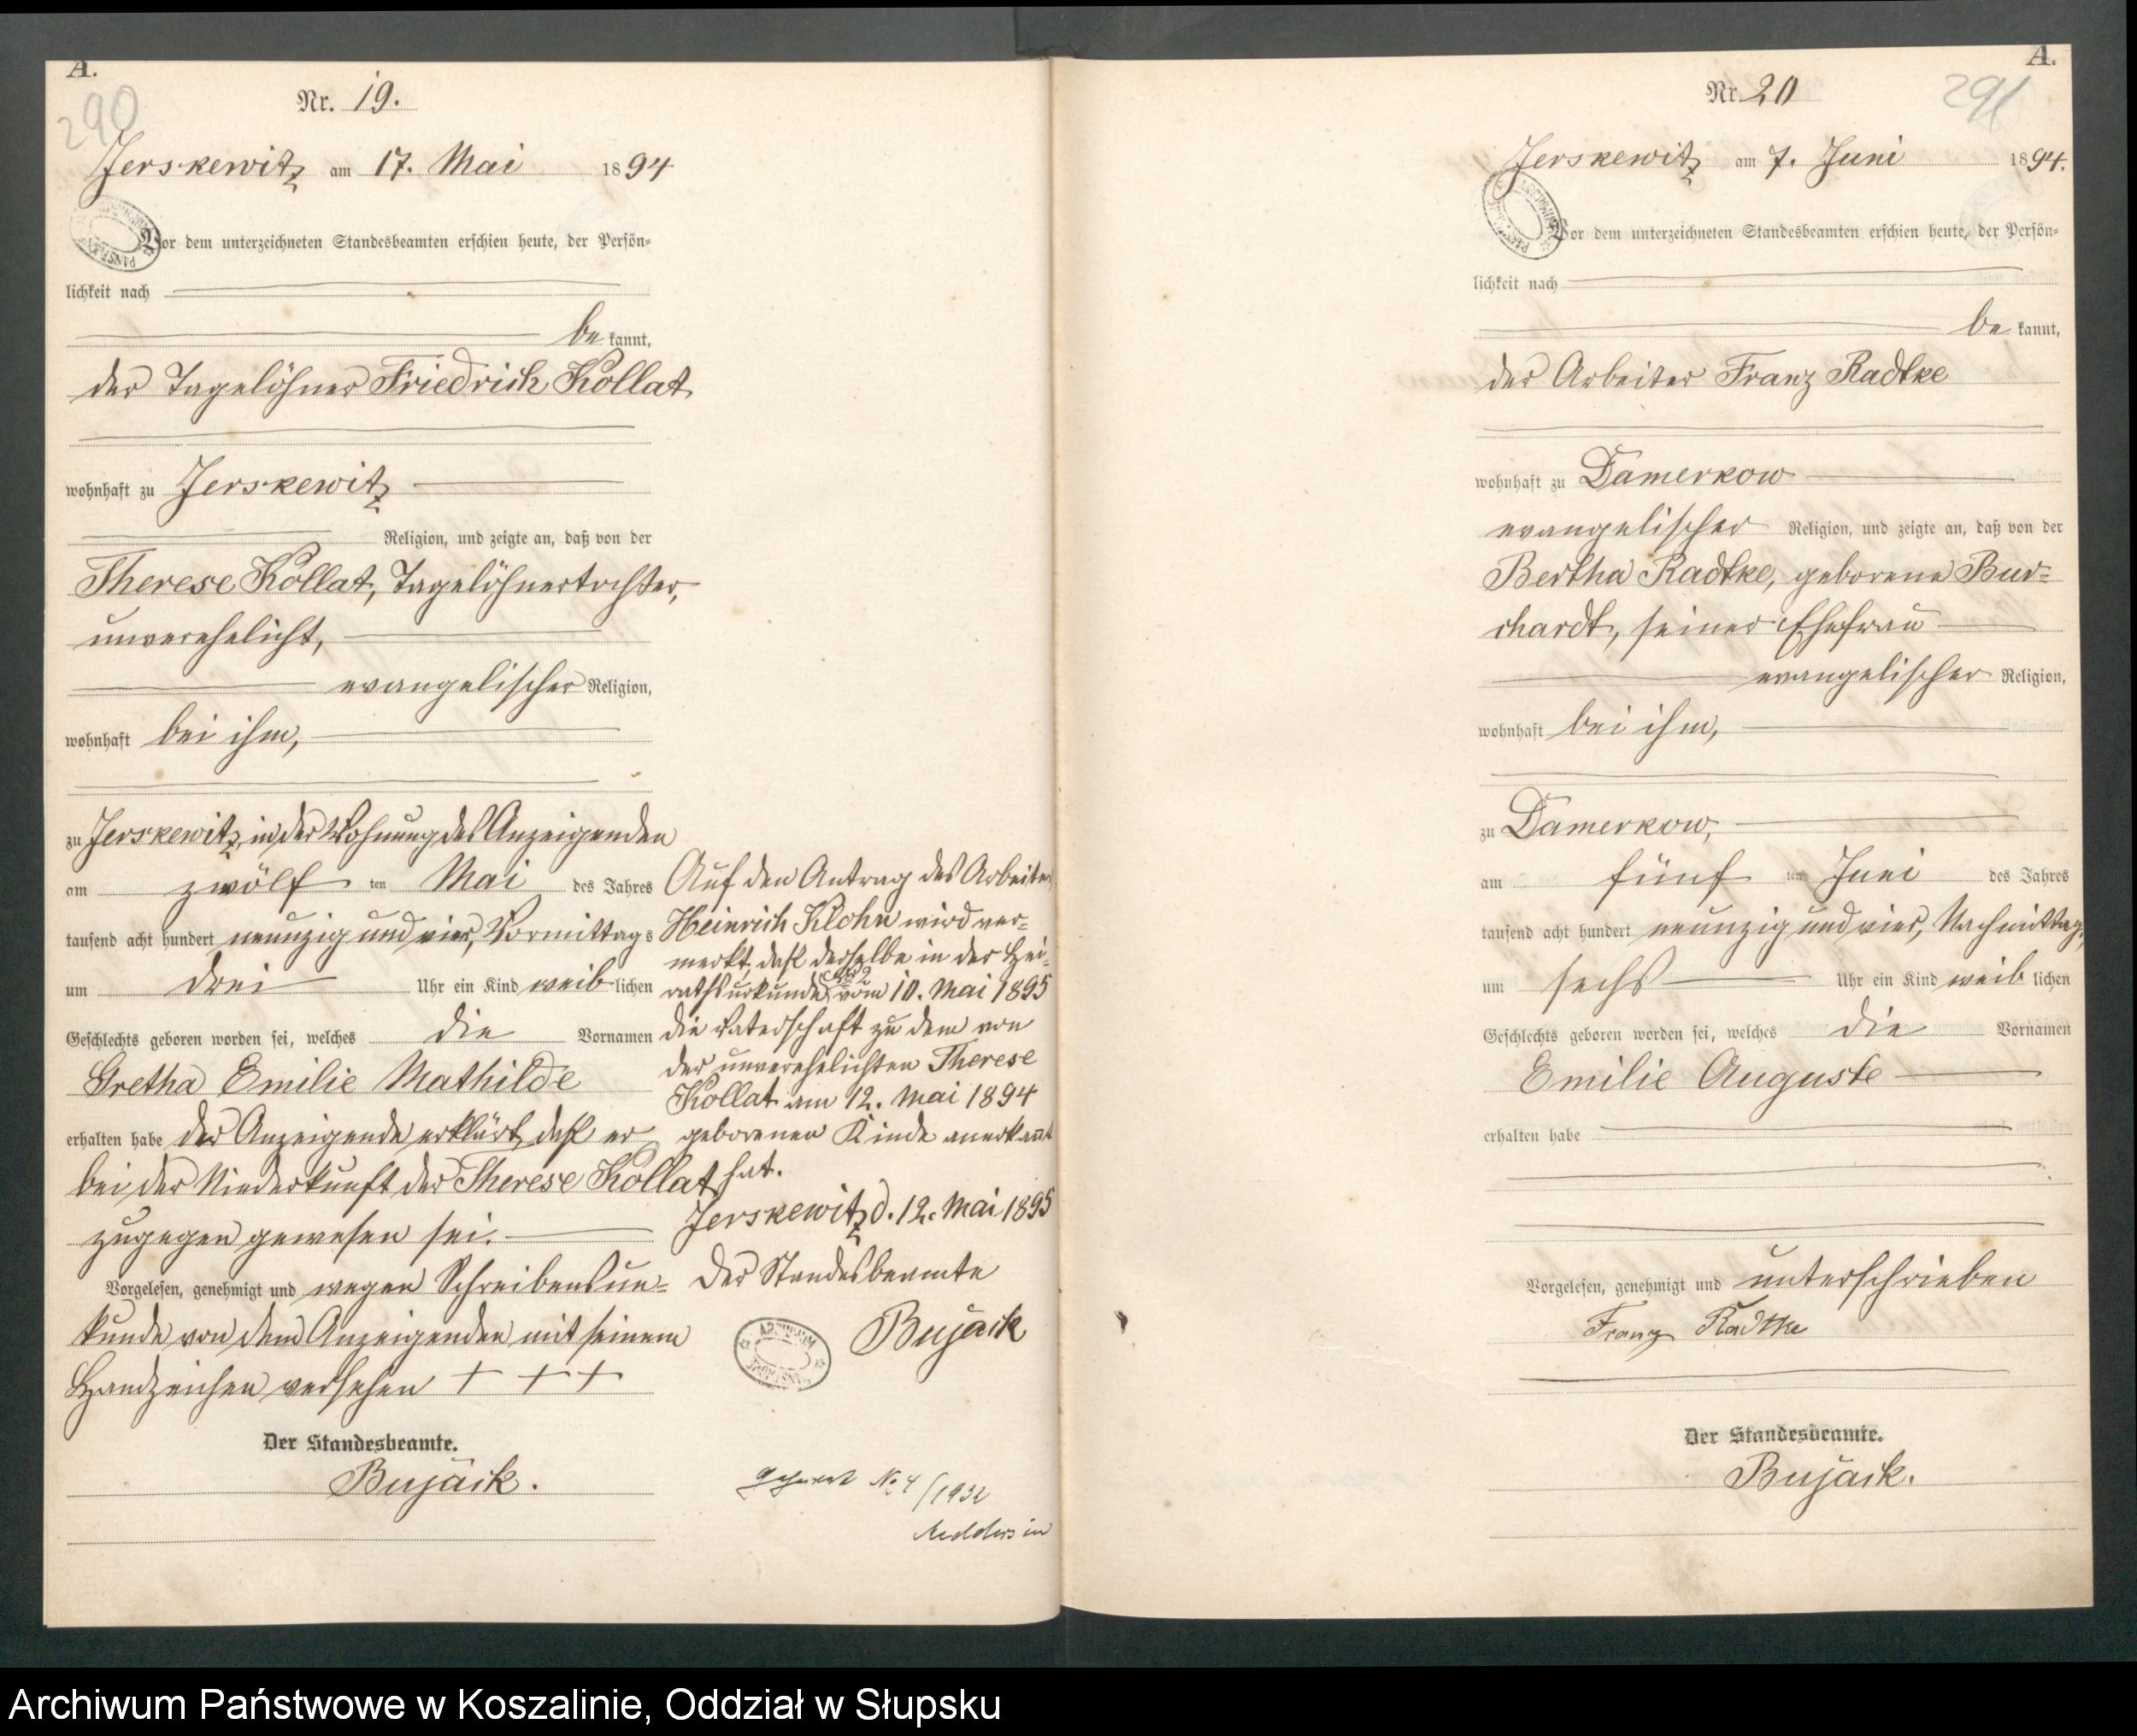 A.
290
Nr. 19.
Jerskewitz am 17. Mai 1894
Vor dem unterzeichneten Standesbeamten erschien heute, der Persön=
lichkeit nach
be kannt,
der Tagelöhner Friedrich Kollat
wohnhaft zu Jerskewitz
Religion, und zeigte an, daß von der
Therese Kollat, Tagelöhnertochter,
unverehelicht,
evangelischer Religion,
wohnhaft bei ihm,
zu Jerskewitz, in der Wohnung des Anzeigenden
am zwölf ten Mai des Jahres
tausend acht hundert neunzig und vier, Vormittags
um drei Uhr ein Kind weib lichen
Geschlechts geboren worden sei, welches die Vornamen
Gretha Emilie Mathilde
erhalten habe der Anzeigende erklärt, daß er
bei der Niederkunft der Therese Kollat
zugegen gewesen sei.
Vorgelesen, genehmigt und wegen Schreibensun=
kunde von dem Anzeigenden mit seinem
Handzeichen versehen + + +
Der Standesbeamte.
Bujack.
Auf den Antrag des Arbeiters
Heinrich Klohn wird ver=
merkt, daß derselbe in der Hei=
rathsurkunde vom 10. Mai 1895
die Vaterschaft zu dem von
der unverehelichten Therese
Kollat am 12. Mai 1894
geborenen Kinde anerkannt
hat.
Jerskewitz d. 12. Mai 1895
Der Standesbeamte
Bujack
No 4/1932
A.
291
Nr. 20
Jerskewitz am 7. Juni 1894.
Vor dem unterzeichneten Standesbeamten erschien heute, der Persön=
lichkeit nach
be kannt,
der Arbeiter Franz Radtke
wohnhaft zu Damerkow
evangelischer Religion, und zeigte an, daß von der
Bertha Radtke, geborene Bur=
chardt, seiner Ehefrau
evangelischer Religion,
wohnhaft bei ihm,
zu Damerkow,
am fünf ten Juni des Jahres
tausend acht hundert neunzig und vier, Nachmittags,
um sechs Uhr ein Kind weib lichen
Geschlechts geboren worden sei, welches die Vornamen
Emilie Auguste
erhalten habe
Vorgelesen, genehmigt und unterschrieben
Franz Radtke
Der Standesbeamte.
Bujack.
Archiwum Państwowe w Koszalinie, Oddział w Słupsku